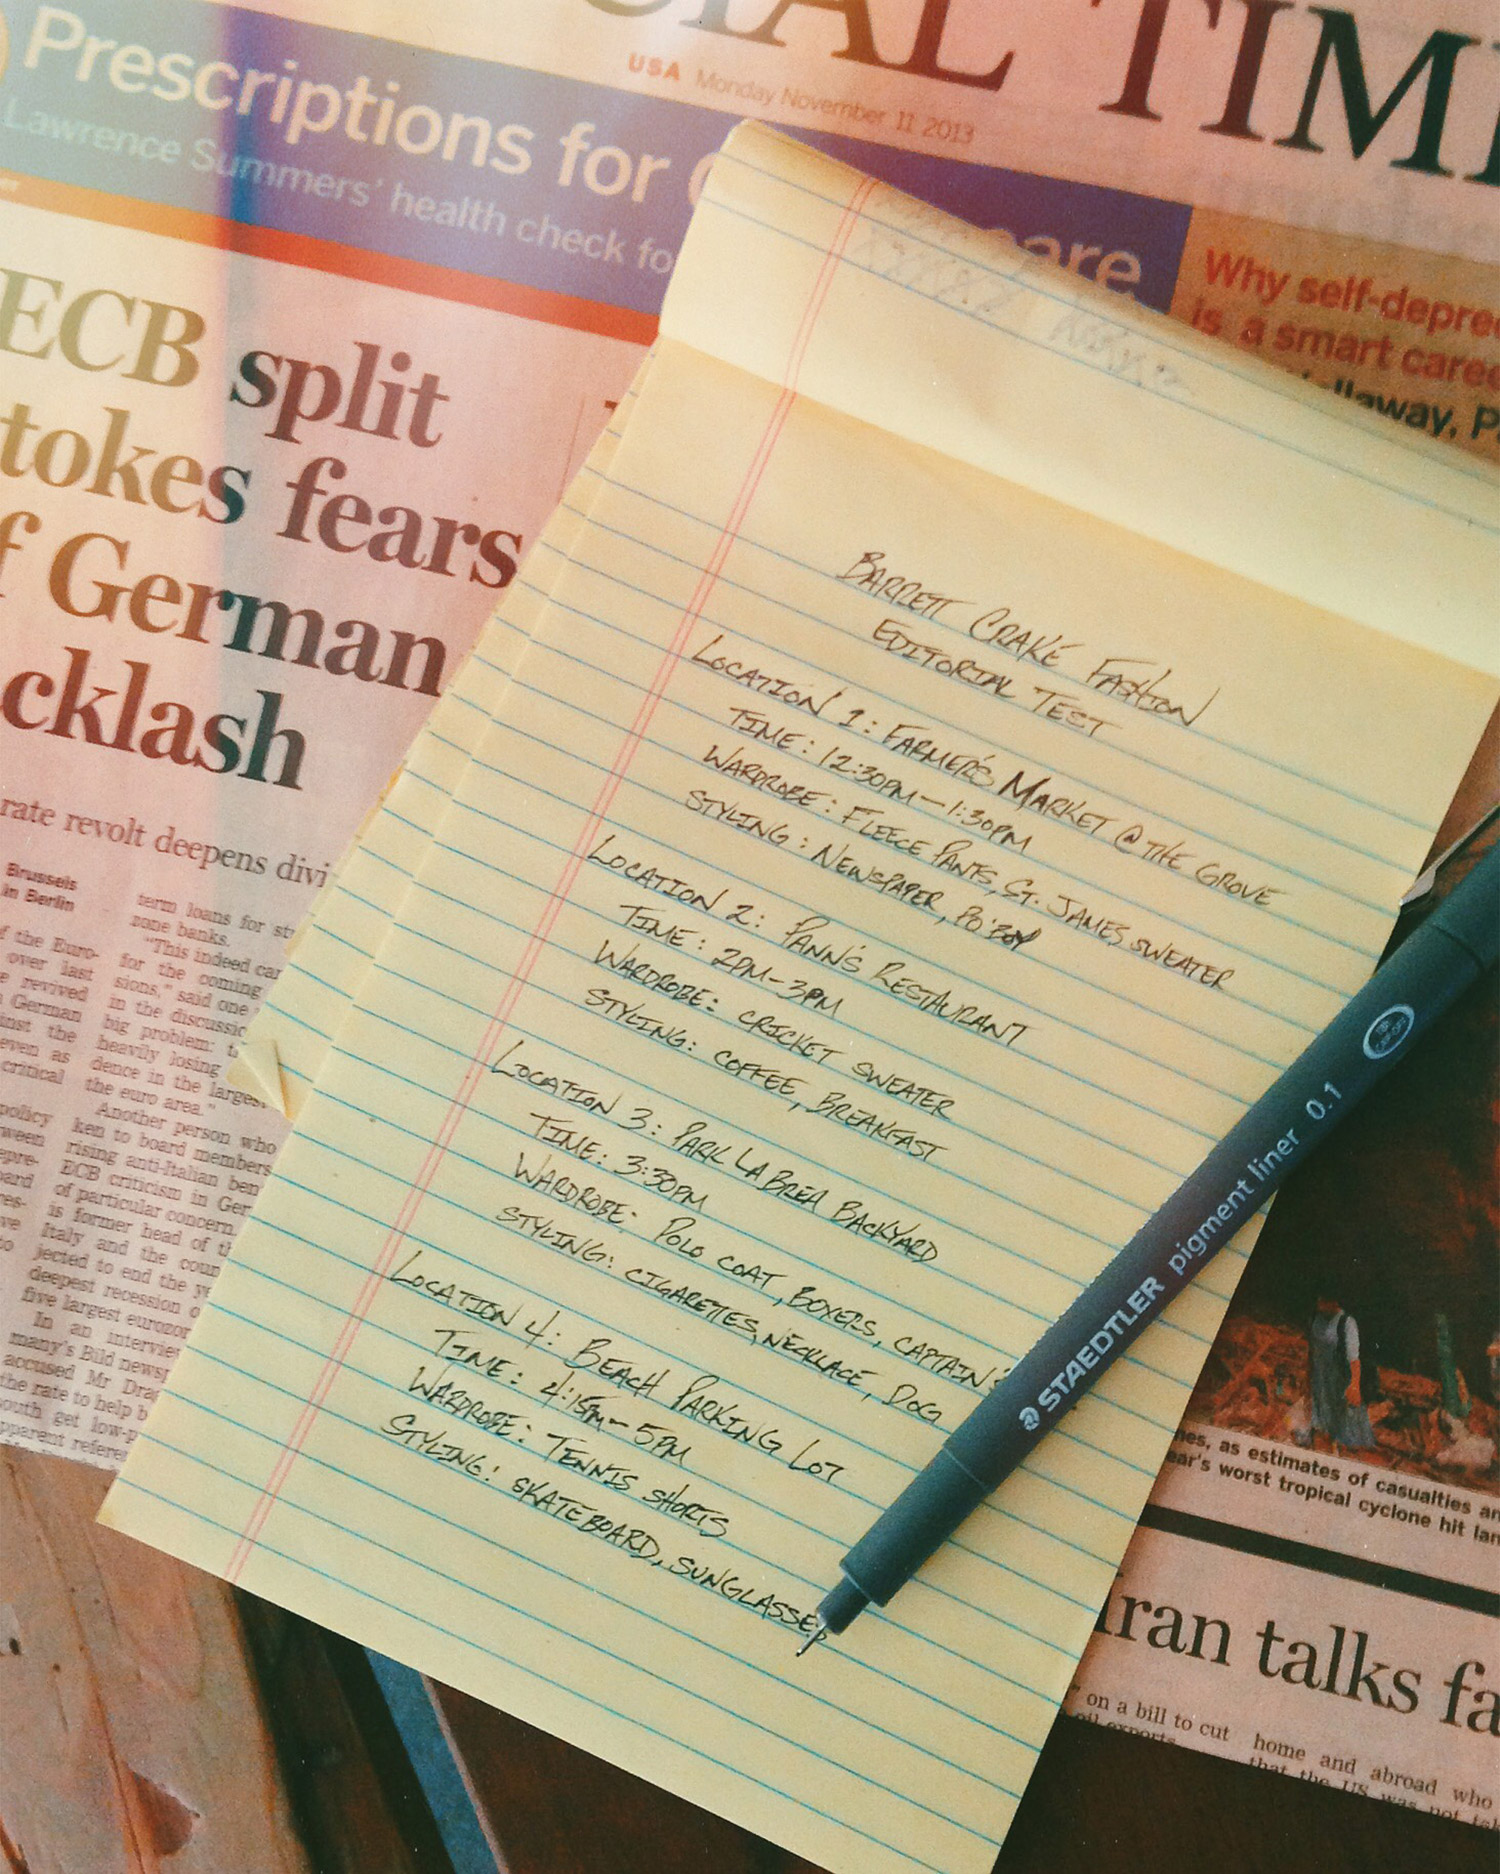 CIAL TIM
USA Monday November 11 2013
Prescriptions for
care
Lawrence Summers' health check fo
Why self-depre
is a smart caree
llaway, P
ECB split
tokes fears
f German
cklash
rate revolt deepens divi
Brussels
in Berlin
f the Euro-
over last
e revived
German
inst the
even as
critical
policy
ween
epre-
oard
res-
ve
to
term loans for st
zone banks.
"This indeed can
for the coming
sions," said one
in the discussio
big problem: t
heavily losing
dence in the largest
the euro area."
Another person who
ken to board members
rising anti-Italian ben
ECB criticism in Ger
of particular concern.
is former head of th
Italy and the coun
jected to end the ye
deepest recession o
five largest eurozon
In an interview
many's Bild newsp
accused Mr Drag
the rate to help b
outh get low-p
pparent referen
BARRETT CRAKE FASHION
EDITORIAL TEST
LOCATION 1: FARMER'S MARKET @ THE GROVE
TIME: 12:30PM-1:30PM
WARDROBE: FLEECE PANTS, ST. JAMES SWEATER
STYLING: NEWSPAPER, PO'BOY
LOCATION 2: PANN'S RESTAURANT
TIME: 2PM-3PM
WARDROBE: CRICKET SWEATER
STYLING: COFFEE, BREAKFAST
LOCATION 3: PARK LA BREA BACKYARD
TIME: 3:30PM
WARDROBE: POLO COAT, BOXERS, CAPTAIN'S
STYLING: CIGARETTES, NECKLACE, DOG
LOCATION 4: BEACH PARKING LOT
TIME: 4:15PM-5PM
WARDROBE: TENNIS SHORTS
STYLING: SKATEBOARD, SUNGLASSES
STAEDTLER pigment liner 0.1
nes, as estimates of casualties an
ear's worst tropical cyclone hit lan
Iran talks fa
" on a bill to cut
oil exports
home and abroad who
that the US was not